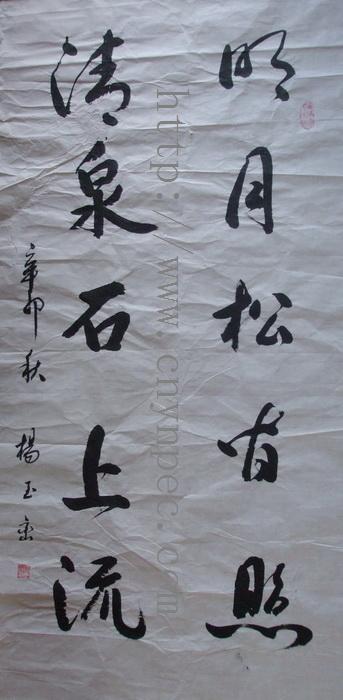 明月松间照
清泉石上流
辛卯秋 楊玉峦
http://www.cnynpec.com